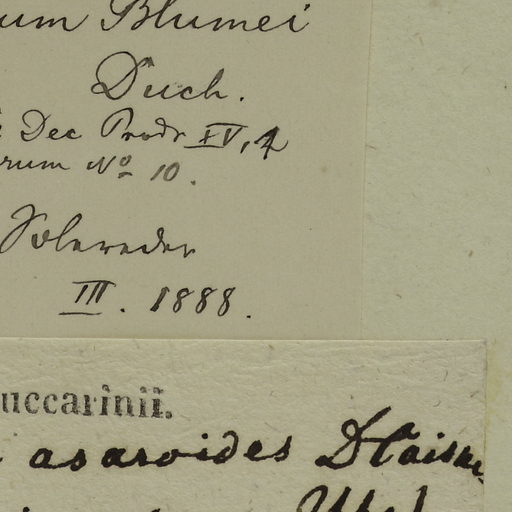 um Blumei
Duch.
Dec Prodr XV, 1
rum No 10.
Solereder
III. 1888.
uccarinii.
asaroides